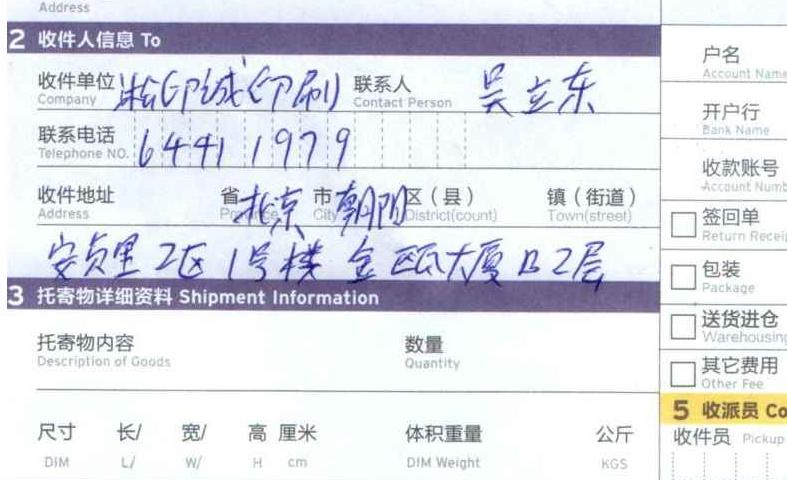 Address
2 收件人信息 To
收件单位 Company 印诚(印刷) 联系人 Contact Person 吴立东
联系电话 Telephone NO. 64411979
收件地址 Address 省 Province 北京 市 City 朝阳 区(县) District(count) 镇(街道) Town(street)
安贞里2区1号楼 金瓯大厦B2层
3 托寄物详细资料 Shipment Information
托寄物内容 数量
Description of Goods Quantity
尺寸 长/ 宽/ 高 厘米 体积重量 公斤
DIM L/ W/ H cm DIM Weight KGS
户名
Account Name
开户行
Bank Name
收款账号
Account Numb
签回单
Return Receip
包装
Package
送货进仓
Warehousing
其它费用
Other Fee
5 收派员 Co
收件员 Pickup